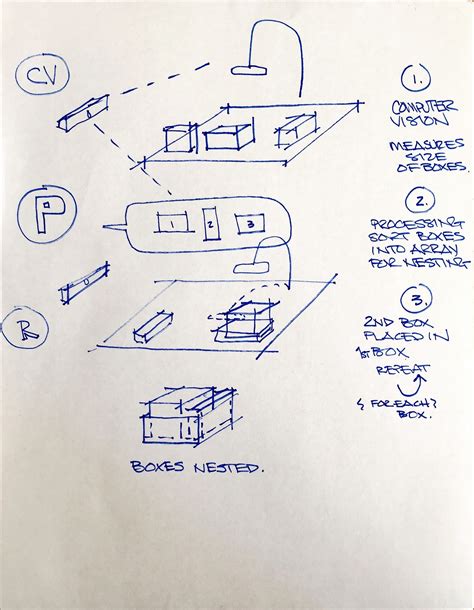 CV
1.
COMPUTER
VISION
MEASURES
SIZE
OF BOXES.
P
1 2 3
2.
PROCESSING
SORT BOXES
INTO ARRAY
FOR NESTING
R
3.
2ND BOX
PLACED IN
1ST BOX
REPEAT
FOREACH
BOX.
BOXES NESTED.